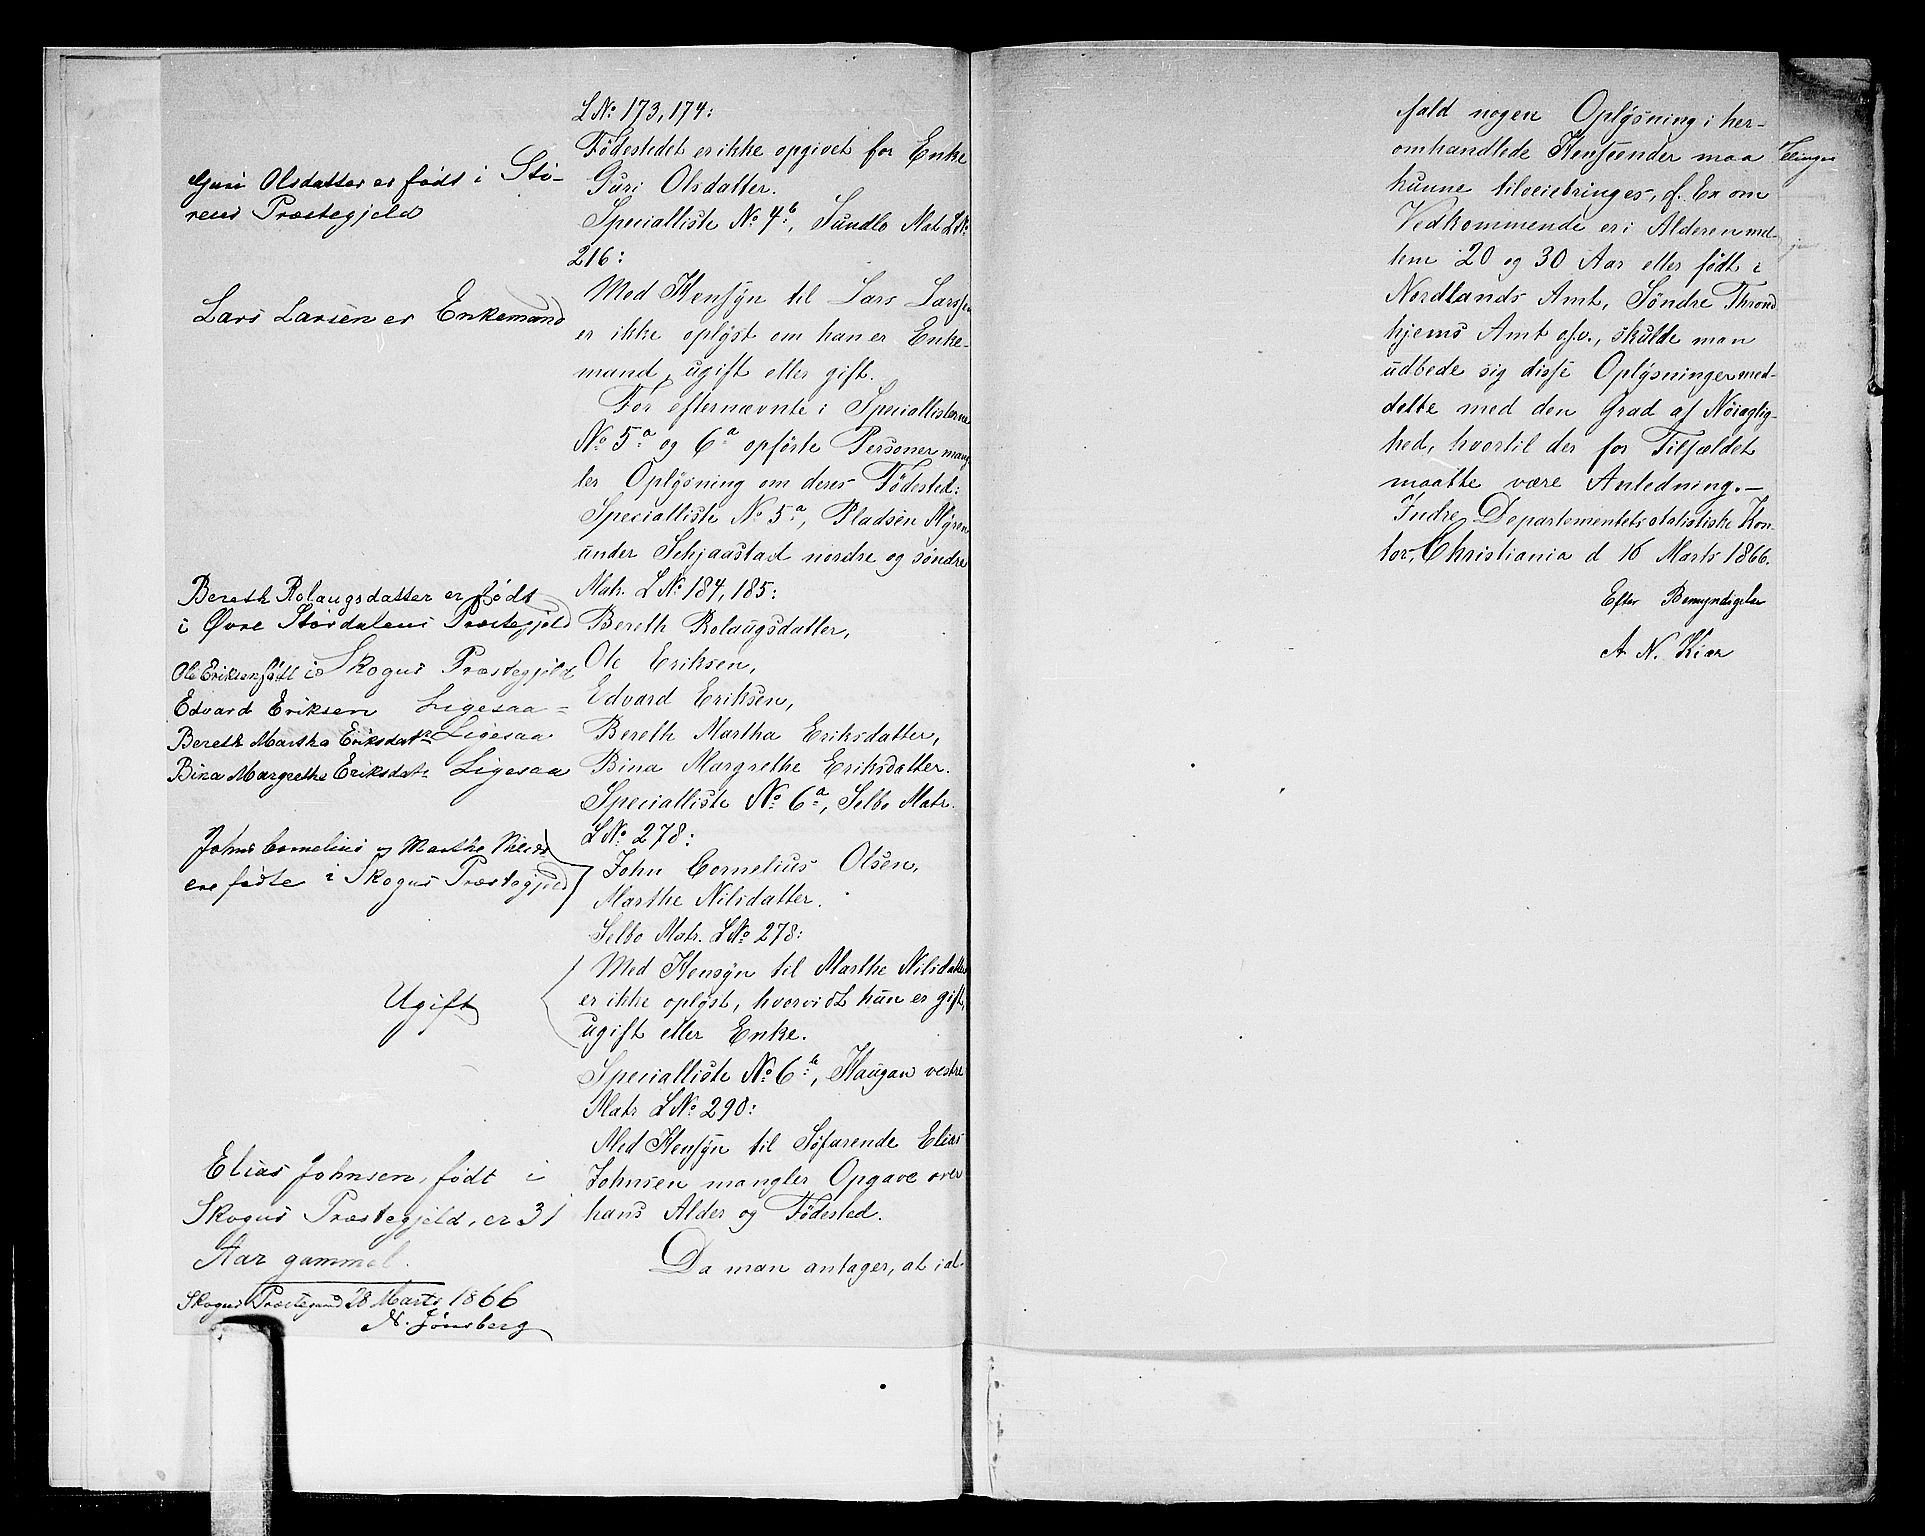 Guri Olsdatter er født i Stø-
rens Præstegjeld
Lars Larsen er Enkemand
Bereth Rolaugsdatter er født
i Øvre Størdalens Præstegjeld
Ole Eriksen født i Skogns Præstegjeld
Edvard Eriksen Ligesaa
Bereth Martha Eriksdatr Ligesaa
Bina Margrethe Eriksdatr Ligesaa
John Cornelius og Marthe Nilsdr
ere fødte i Skogns Præstegjeld
Ugift
Elias Johnsen, født i
Skogns Præstegjeld, er 31
Aar gammel.
Skogns Præstegaard 28 Marts 1866
N. Jönsberg
LNo 173, 174:
Fødestedet er ikke opgivet for Enke
Guri Olsdatter.
Specialliste No 4b, Sundlo Mat LNo
216:
Med Hensyn til Lars Larssen
er ikke oplyst om han er Enke-
mand, ugift eller gift.
For efternævnte i Speciallisterne
No 5a og 6a opførte Personer mang
ler Oplysning om deres Fødested:
Specialliste No 5a, Pladsen Myren
under Schjaastad nordre og søndre
Matr. LNo 184, 185:
Bereth Rolaugsdatter,
Ole Eriksen,
Edvard Eriksen,
Bereth Martha Eriksdatter,
Bina Margrethe Eriksdatter.
Specialliste No 6a, Selbo Matr.
LNo 278:
John Cornelius Olsen,
Marthe Nilsdatter.
Selbo Matr. LNo 278:
Med Hensyn til Marthe Nilsdatter
er ikke oplyst, hvorvidt hun er gift,
ugift eller Enke.
Specialliste No 6b, Haugan vestre
Matr LNo 290:
Med Hensyn til Søfarende Elias
Johnsen mangler Opgave over
hans Alder og Fødested.
Da man antager, at i al
fald nogen Oplysning i her-
omhandlede Henseender maa
kunne tilveiebringes, f. Ex om
Vedkommende er i Alderen mel-
lem 20 og 30 Aar eller født i
Nordlands Amt, Søndre Thrond
hjems Amt osv., skulde man
udbede sig disse Oplysninger med-
delte med den Grad af Nøiaglig-
hed, hvortil der for Tilfældet
maatte være Anledning.-
Indre Departementets statistiske Kon-
tor, Christiania d 16 Marts 1866.
Efter Bemyndigelse
A N. Kiær